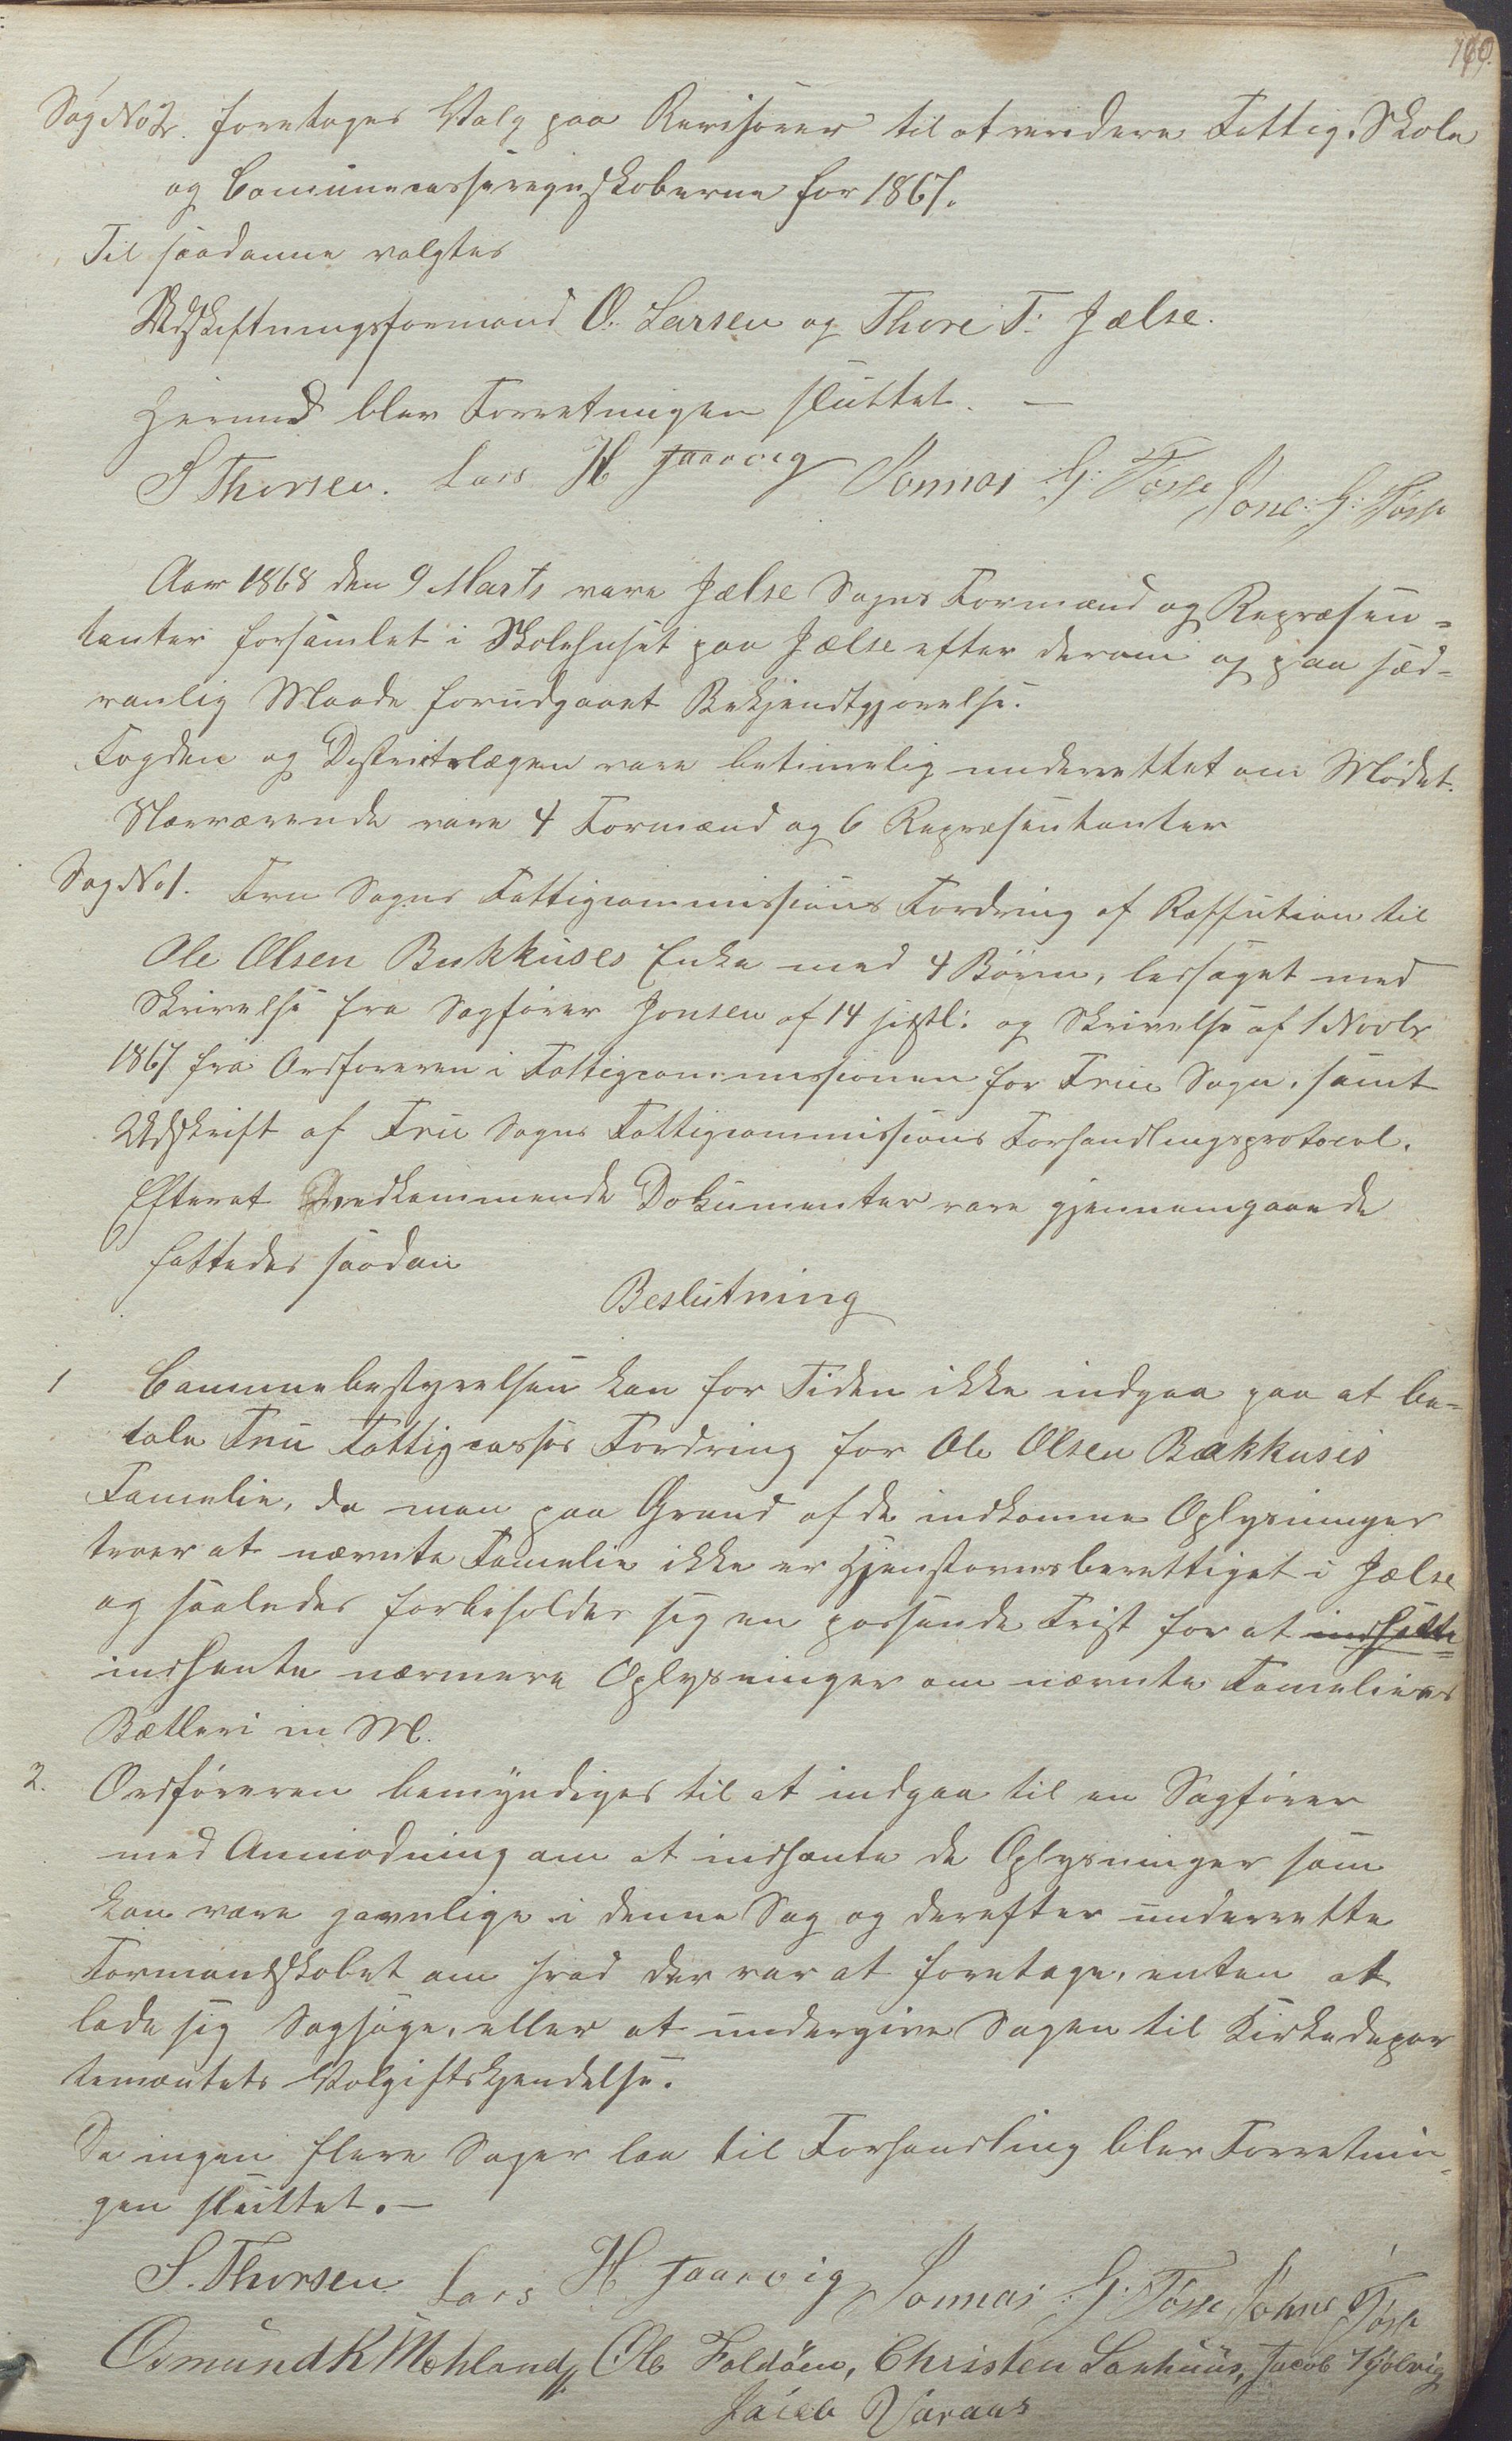 160.
Sag No 2. foretoges Valg paa Revisorer til at revidere Fattig- Skole
og Communecasseregnskaberne for 1867.
Til saadanne valgtes
Udskiftningsformand O. Larsen og Thore T. Jælse.
Hermed blev Forretningen sluttet. —
S Thorsen. Lars H Jaarvig Jonnas G: Tøsse Jone: G: Tøsse
Aar 1868 den 9 Marts vare Jælse Sogns Formænd og Repræsen-
tanter forsamlet i Skolehuset paa Jælse efter derom og paa sæd-
vanlig Maade forudgaaet Bekjendtgjørelse.
Fogden og Districtslægen vare betimelig underrettet om Mødet.
Nærværende vare 4 Formænd og 6 Repræsentanter
Sag No 1. Frue Sogns Fattigcommissions Fordring af Refusion til
Ole Olsen Bakkuses Enke med 4 Børn, ledsaget med
Skrivelse fra Sagfører Jonsen af 14 sistl: og Skrivelse af 1 Novbr
1867 fra Ordføreren i Fattigcommissionen for Frue Sogn, samt
Udskrift af Frue Sogns Fattigcommissions Forhandlingsprotocol.
Efterat vedkommende Dokumenter vare gjennemgaaede
fattedes saadan
Beslutning
1 Communebestyrelsen kan for Tiden ikke indgaa paa at be-
tale Frue Fattigcasses Fordring for Ole Olsen Bakkuses
Familie, da man paa Grund af de indkomne Oplysninger
troer at nævnte Familie ikke er Hjemstavnsberettiget i Jælse
og saaledes forbeholder sig en passende Frist for at indhætte
indhente nærmere Oplysninger om nævnte Familiers
Bætleri m M.
2. Ordføreren bemyndiges til at indgaa til en Sagfører
med Anmodning om at indhente de Oplysninger som
kan være gavnlige i denne Sag og derefter underrette
Formandskabet om hvad der var at foretage, enten at
lade sig Sagsøge, eller at undergive Sagen til Kirkedepar
tementets Volgiftskjendelse.
Da ingen flere Sager laa til Forhandling blev Forretnin-
gen sluttet. —
S. Thorsen Lars H Jaarvig Jonnas G. Tøsse Johne Tøsse
Osmund K Mehland, Ole Foldøen, Christen Sanhuus, Jacob Kjølvig
Jacob Varaas